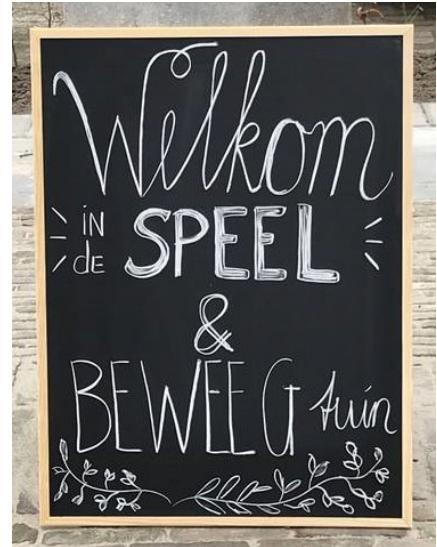 Welkom
iN de SPEEL
&
BEWEEG tuin